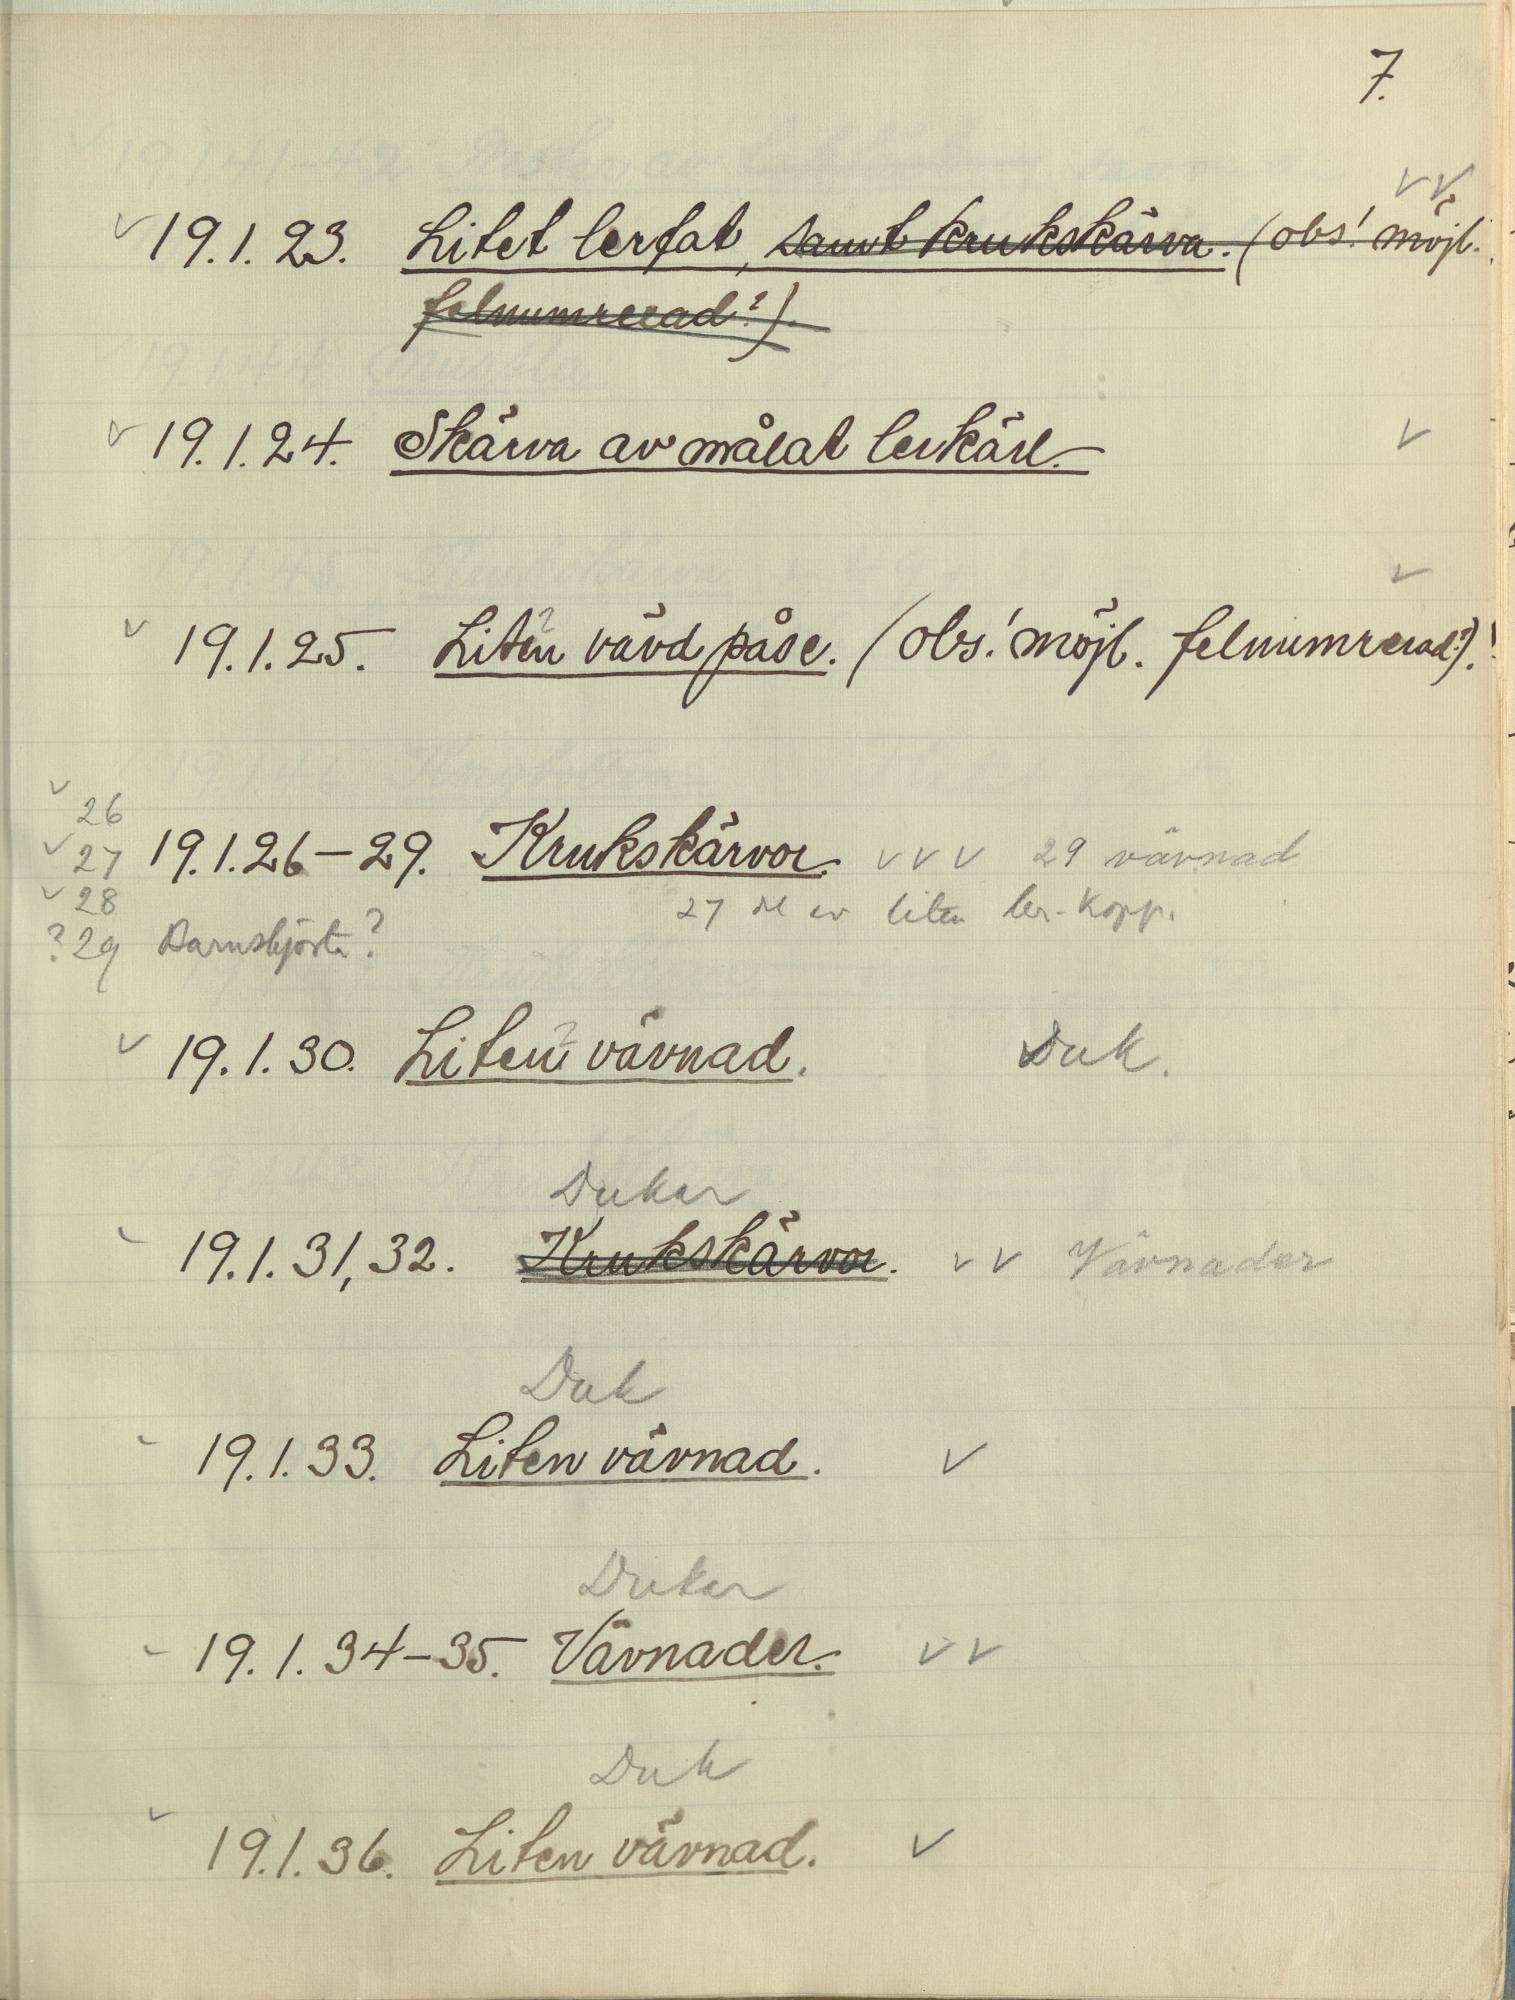 7.
✓✓
✓ 19.1.23. Litet lerfat, samt krukskärva. (obs! möjl.
felnumrerad?).
✓ 19.1.24. Skärva av målat lerkärl. ✓
✓
✓ 19.1.25. Liten? vävd påse. (obs! möjl. felnumrerad?).!
✓ 26
✓ 27 19.1.26-29. Krukskärvor. ✓✓✓ 29 vävnad
✓ 28 27 del av liten ler-kopp.
? 29 Barnskjorta?
✓ 19.1.30. Liten? vävnad. Duk.
Dukar
✓ 19.1.31,32. Krukskärvor. ✓✓ Vävnader
Duk
✓ 19.1.33. Liten vävnad. ✓
Dukar
✓ 19.1.34-35. Vävnader. ✓✓
Duk
✓ 19.1.36. Liten vävnad. ✓